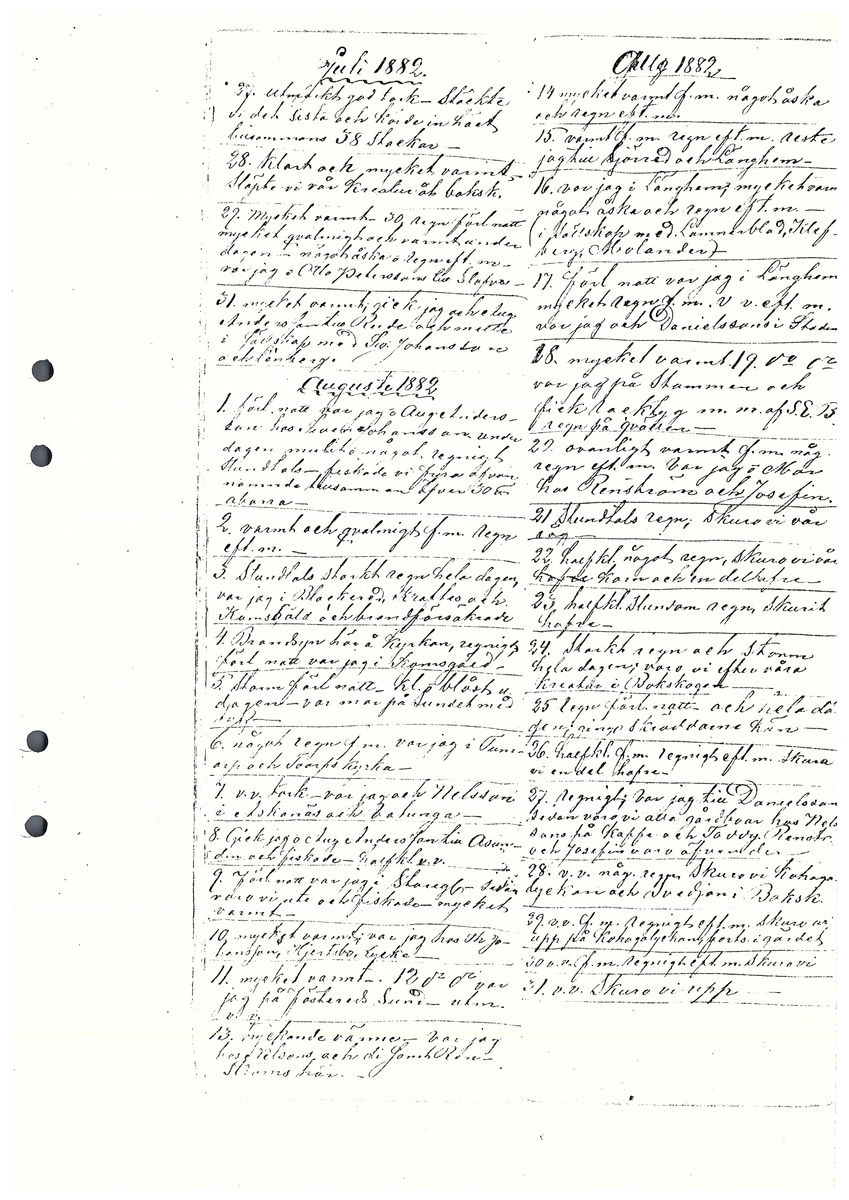 Juli 1882.
27. utmärkt god tork – Stäckte
vi det sista och körde in höet
tillsammans 38 Stackar –
28. Klart och mycket varmt
Släpte vi vår Kreatur åt boksk.
29. Mycket varmt – 30, regn förl. natt
mycket qvalmigt och varmt under
dagen – något åska o regn eft. m.
var jag o Otto Petersson
31. mycket varmt, gick jag och Aug.
Andersson till och mette
i sällskap med Sv. Johansson
och Lönberg.
Auguste 1882
1. förl. natt var jag o Aug. Anders-
son hos Johansson under
dagen mulit o något regnigt
Stundtals – fiskade vi fyra ofvan
nämnde tillsamman öfver 30
abborra –
2. varmt och qvalmigt f.m. regn
eft. m. –
3. Stundtals starkt regn hela dagen,
var jag i Blackered, Kraftås och
och brandförsäkrade
4. Brandsyn här å Kyrkan, regnigt
förl. natt var jag i Komsgård
5. Storm förl. natt – kl. blåst u.
dagen – var mor på Sundet med
6. något regn f.m. var jag i Tum-
arp och Toarps Kyrka –
7. v.v. tork – var jag och Nelsson
i och
8. Gick jag o Aug. Anders Jon till Asun-
den och fiskade – halfkl. v.v.
9. Förl. natt var jag i – sedan
voro vi ute och fiskade – mycket
varmt –
10, mycket varmt, var jag hos Jo-
hansson,
11. mycket varmt – 12, do do var
jag på Fästereds Sund – utm.
v. v.
13. tryckande värme – var jag
hos Nelsons och di samt Ren-
ströms här. –
Aug 1882
14 mycket varmt f.m. något åska
och regn eft. m.
15. varmt f.m. regn eft. m. reste
jag till och Länghem –
16. var jag i Länghem, mycket varm
något åska och regn eft. m. –
(i sällskap med Lammerblad,
Molander)
17. förl. natt var jag i Länghem
mycket regn f.m. v v. eft. m.
var jag och Danielssons i Staden
18. mycket varmt 19. do do
var jag på Stommen och
fick racktyg m. m. af S. E. B.
regn på qvällen –
20. ovanligt varmt f.m. någ.
regn eft. m. Var jag o Mor
hos Renström och Josefin.
21 Stundtals regn, Skuro vi vår
råg –
22. halfkl. något regn, Skuro vi vår
Korn och en del hafre –
23. halfkl. Stundom regn, Skurit
hafre –
24. Starkt regn och Storm
hela dagen; voro vi efter våra
Kreatur i Bokskogen –
25 regn förl. natt – och hela da-
gen, ginge Skräddarne hän –
26. halfkl. f.m. regnigt eft. m. Skura
vi en del hafre –
27. regnigt, Var jag till Danielsson
sedan voro vi alla gårdboar hos Nels-
sons på Kaffe och Renstr.
och Josefin voro äfvenledes –
28. v.v. någ. regn, Skuro vi Kohaga-
lyckan och Svedjan i Boksk
29. v.v. f.m. regnigt eft. m. Skuro vi
upp på Kohagalyckan, forts. i gärdet
30 v.v. f.m. regnigt eft. m. Skuro vi
31. v.v. Skuro vi upp –